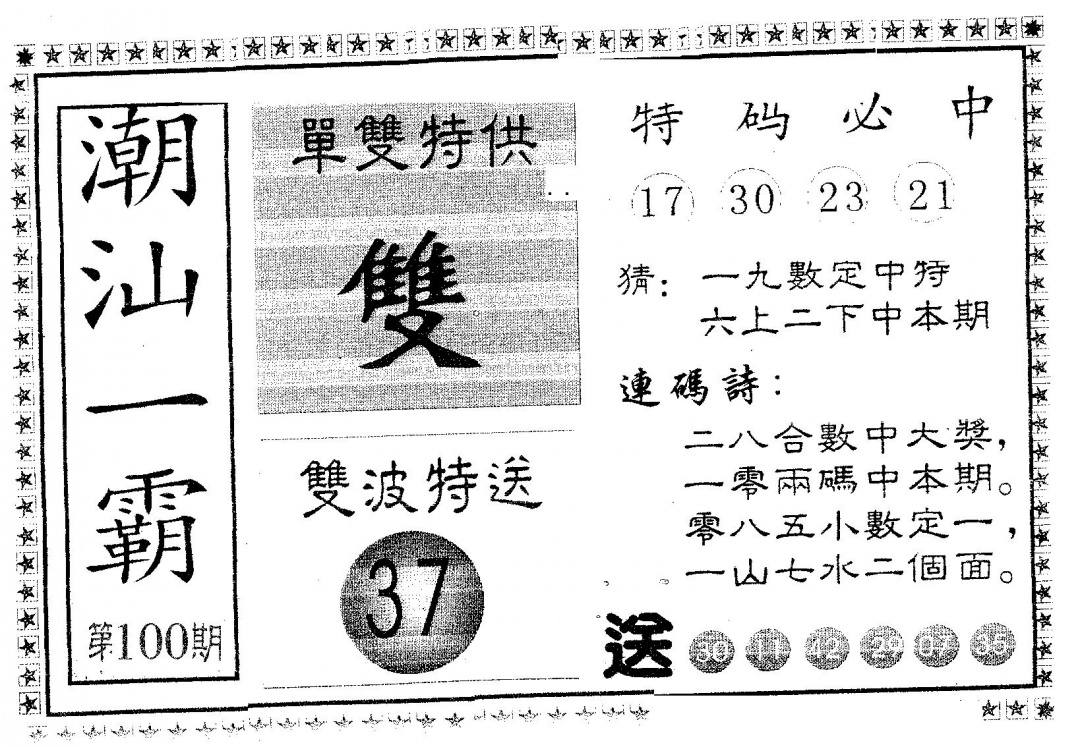 潮汕一霸
第100期
單雙特供
雙
雙波特送
37
特码必中
17 30 23 21
猜：一九數定中特
六上二下中本期
連碼詩：
二八合數中大獎，
一零兩碼中本期。
零八五小數定一，
一山七水二個面。
送 30 11 42 29 07 35